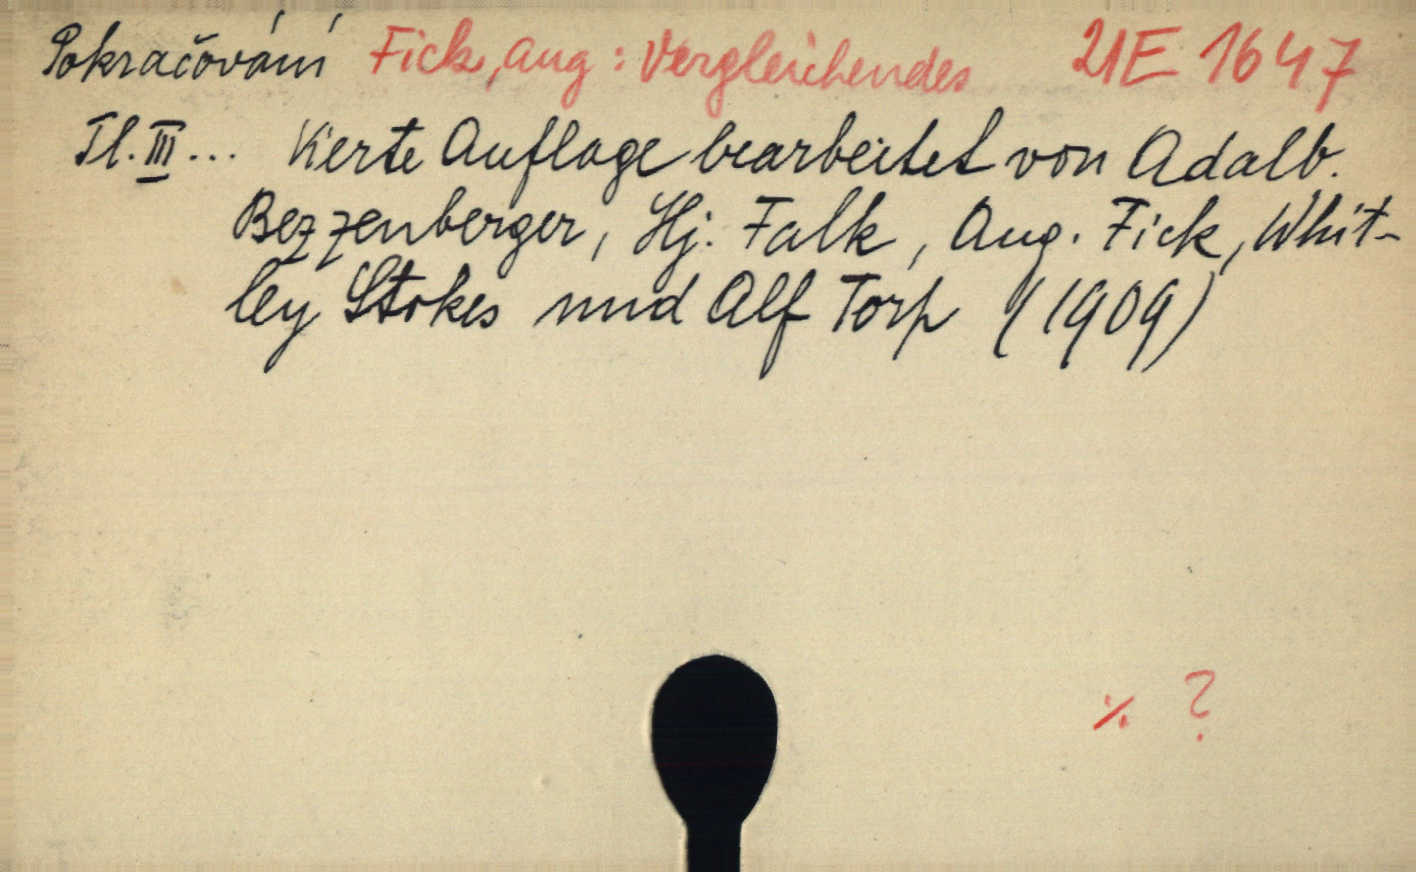 Pokračování Fick, Aug: Vergleichendes 2IE 1647
Tl. III... Vierte Auflage bearbeitet von Adalb.
Bezzenberger, Hj. Falk, Aug. Fick, Whit-
ley Stokes und Alf Torp (1909)
% ?